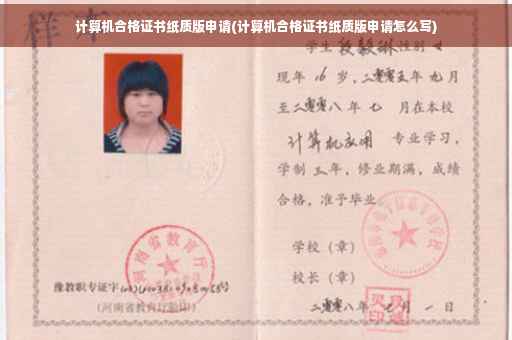 计算机合格证书纸质版申请(计算机合格证书纸质版申请怎么写)
学生 性别 女
现年 16 岁，二零零五年 九月
至二零零八年 七 月在本校
计算机应用 专业学习，
学制 三年，修业期满，成绩
合格，准予毕业
学校（章）
校长（章）
二零零八年 七 月 一 日
河南省教育厅
豫教职专证字
(河南省教育厅验印)